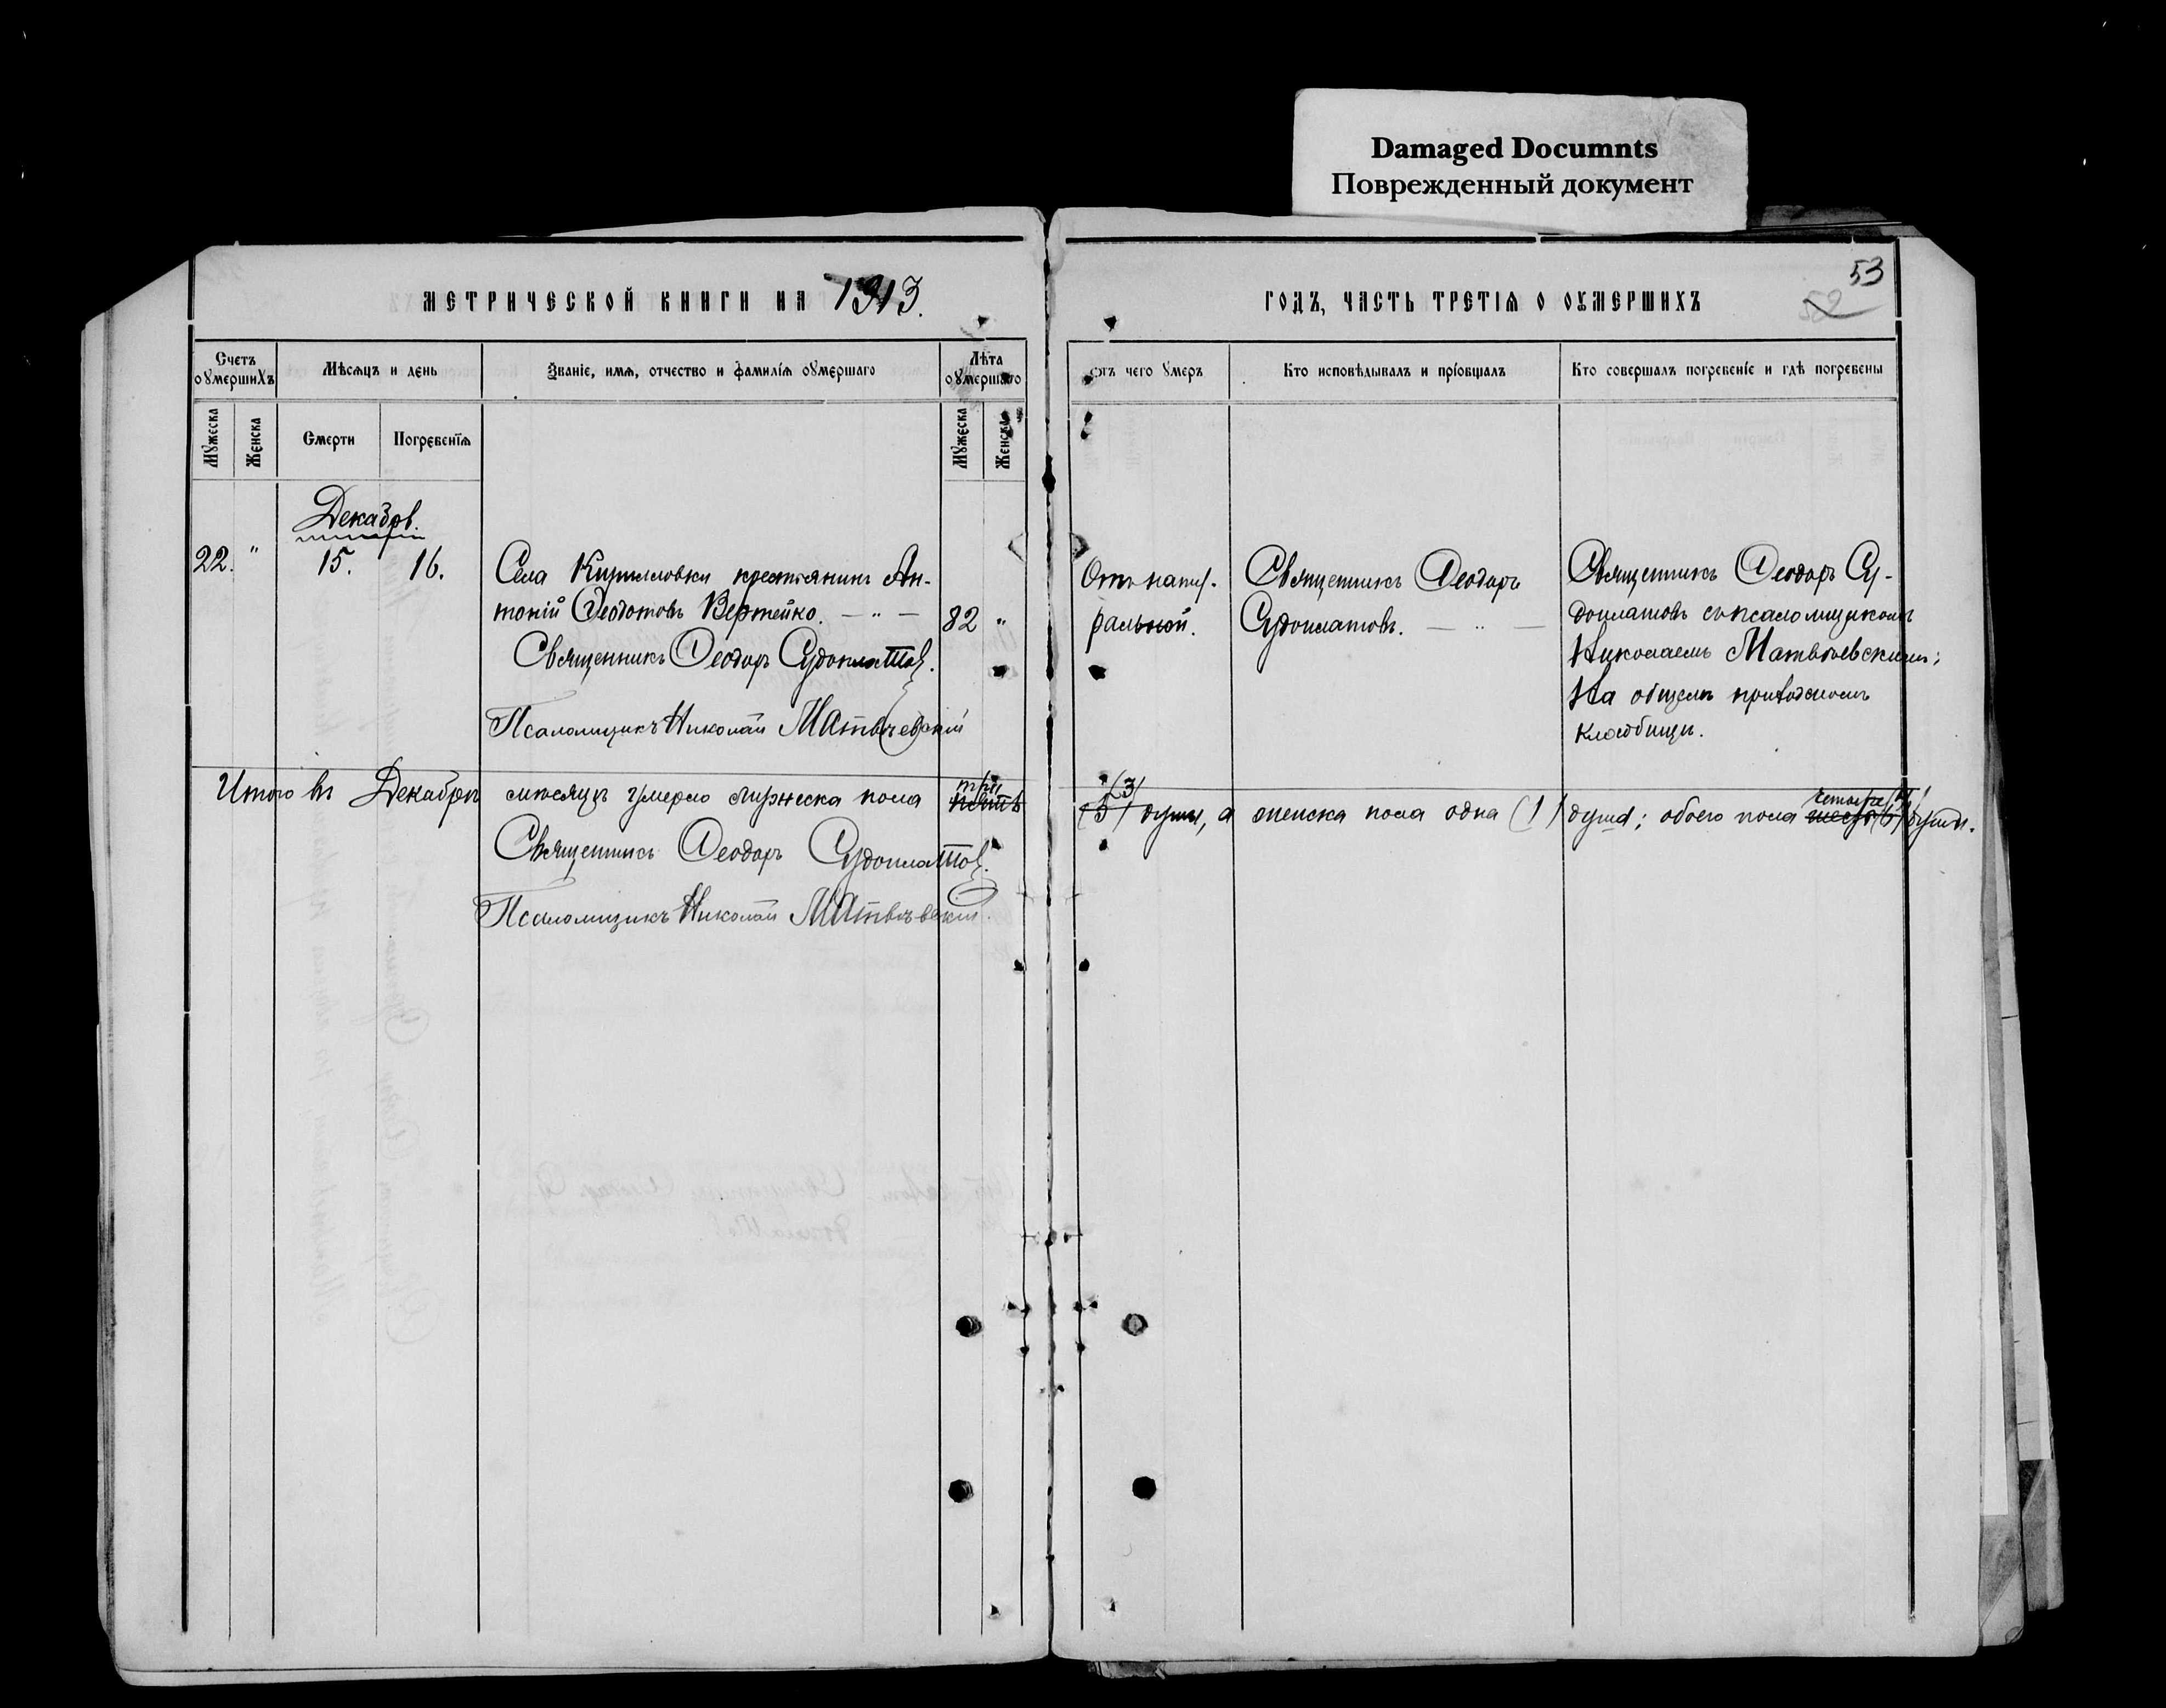 Damaged Documnts
Поврежденный документ
53
52
МЕТРИЧЕСКОЙ КНИГИ НА 1913.
ГОДЪ, ЧАСТЬ ТРЕТІЯ О ОУМЕРШИХЪ
Счетъ оумершихъ
Мѣсяцъ и день
Званіе, имя, отчество и фамилія оумершаго
Лѣта оумершаго
Отъ чего умеръ
Кто исповѣдывалъ и пріобщалъ
Кто совершалъ погребеніе и гдѣ погребены
Мужеска
Женска
Смерти
Погребенія
Мужеска
Женска
Декабрь.
22. " 15. 16.
Села Кирилловки крестьянинъ Ан-
тоній Ѳеодотовъ Вертейко. — " —
82 "
Священникъ Ѳеодоръ Судоплатовъ.
Псаломщикъ Николай Матвѣевскій
Отъ нату-
ральной.
Священникъ Ѳеодоръ
Судоплатовъ. — " —
Священникъ Ѳеодоръ Су-
доплатовъ съ псаломщикомъ
Николаемъ Матвѣевскимъ;
На общемъ приходскомъ
кладбищѣ.
три (3) четыре (4)
Итого въ Декабрѣ мѣсяцѣ умерло мужеска пола пять (5) души, а женска пола одна (1) душа; обоего пола шесть (6) души.
Священникъ Ѳеодоръ Судоплатовъ.
Псаломщикъ Николай Матвѣевскій.